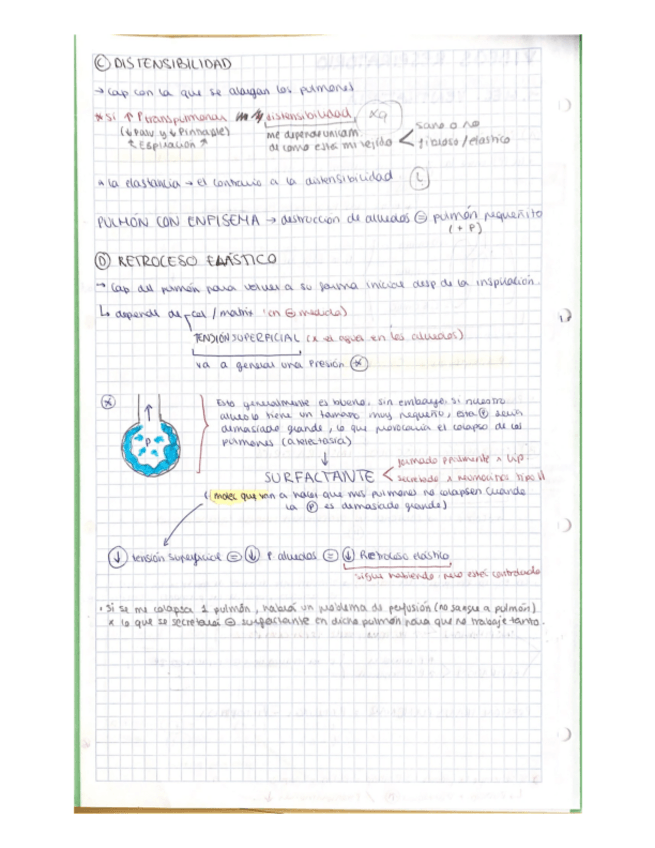 Ⓒ DISTENSIBILIDAD
→ cap con la que se alargan los pulmones
* Si ↑ Ptranspulmonar distensibilidad, xq
(↓Palv y ↓Pintrapl)
↑ Espiración ↗
me depende unicam. de como este mi tejido < sano o no
fibroso / elastico
* la elastancia → el contrario a la distensibilidad
PULMÓN CON ENFISEMA → destruccion de alveolos ⊜ pulmón pequeñito
(+ P)
Ⓓ RETROCESO ELÁSTICO
→ cap del pulmón para volver a su forma inicial desp de la inspiración.
↳ depende de cel / matriz (en ⊖ medida)
TENSIÓN SUPERFICIAL (x el agua en los alveolos)
va a generar una Presión ⊛
⊛
P
Esto generalmente es bueno, sin embargo, si nuestro
alveolo tiene un tamaño muy pequeño, esta Ⓟ sería
demasiado grande, lo que provocaría el colapso de los
pulmones (atelectasia)
↓
SURFACTANTE < formado pralmente x lip
secretado x neumocitos tipo II
(molec que van a hacer que mis pulmones no colapsen cuando
la Ⓟ es demasiado grande)
↓ tensión superficial ⊜ ↓ P alveolos ⊜ ↓ Retroceso elástico
sigue habiendo, pero está controlado
· Si se me colapsa 1 pulmón, habrá un problema de perfusión (no sangre a pulmón)
x lo que se secretará ⊖ surfactante en dicho pulmón para que no trabaje tanto.